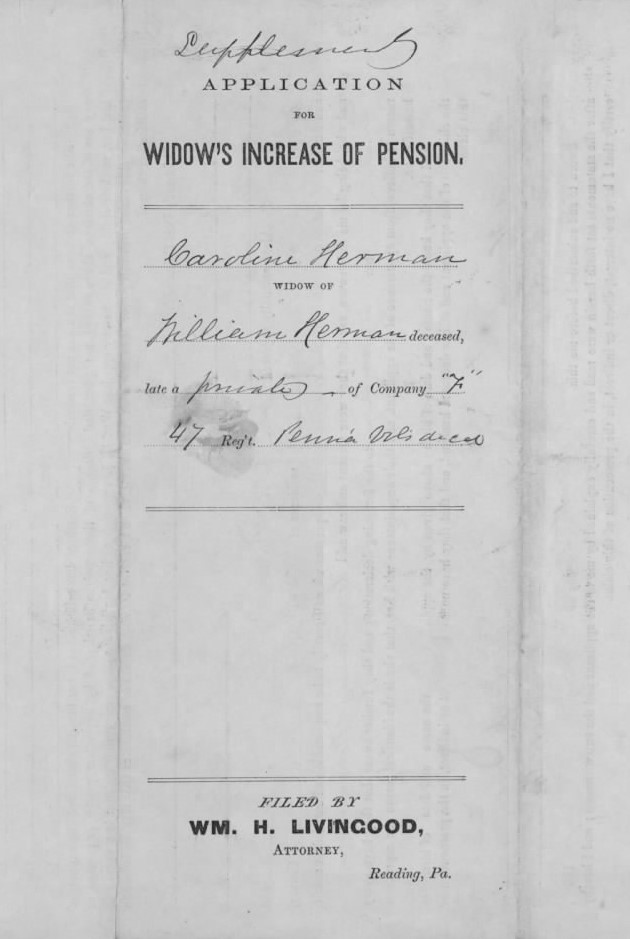 Supplement
APPLICATION
FOR
WIDOW'S INCREASE OF PENSION.
Caroline Herman
WIDOW OF
William Herman deceased,
late a private of Company "F"
47 Reg't. Penn'a Vols decd
FILED BY
WM. H. LIVINGOOD,
ATTORNEY,
Reading, Pa.